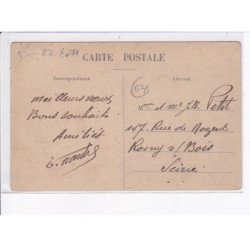 22 
CARTE POSTALE
Correspondance
Adresse
54
meilleurs vœux
Bons souhaits
Amitiés
Mme & Mr J.B. Petit
147 Rue de Nogent
Rosny s/ Bois
Seine